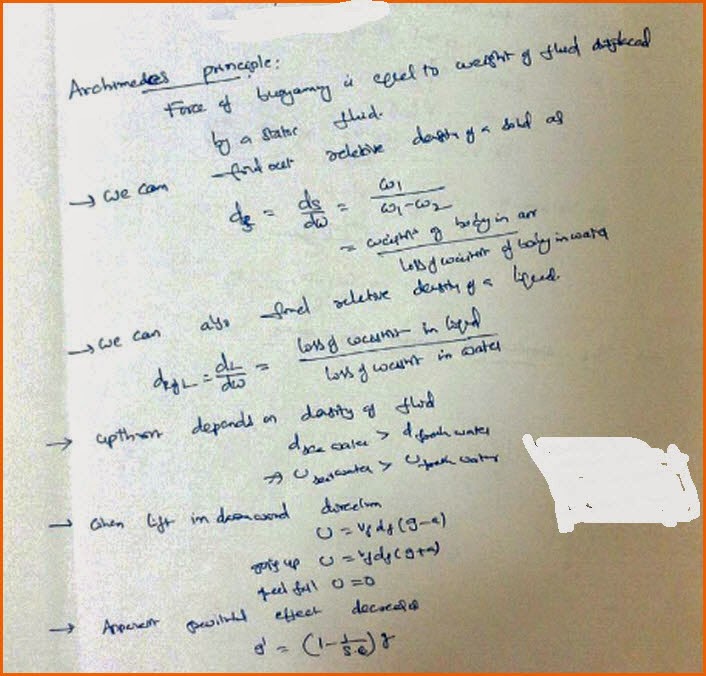 Archimedes principle:
Force of buoyancy is equal to weight of fluid displaced
by a static fluid.
→ we can find out relative density of a solid as
ds/dw = ω1/(ω1-ω2)
= weight of body in air / Loss of weight of body in water
→ we can also find relative density of a liquid
dRgL = dL/dw = Loss of weight in liquid / Loss of weight in water
→ upthrust depends on density of fluid
d sea water > d fresh water
⇒ U sea water > U fresh water
→ when lift in downward direction
U = Vfdf(g-a)
going up U = Vfdf(g+a)
free fall U = 0
→ Apparent effect decreases
g' = (1 - 1/S.G)g